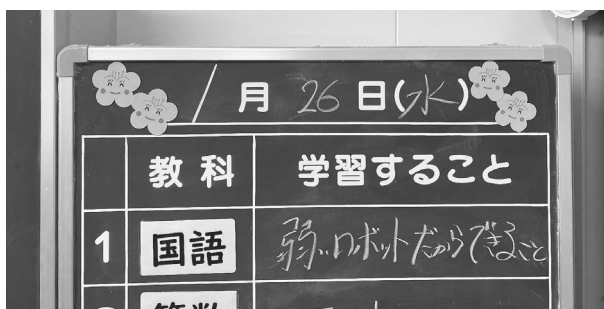 1月26日(水)
教科 学習すること
1 国語 弱いロボットだからできること
算数